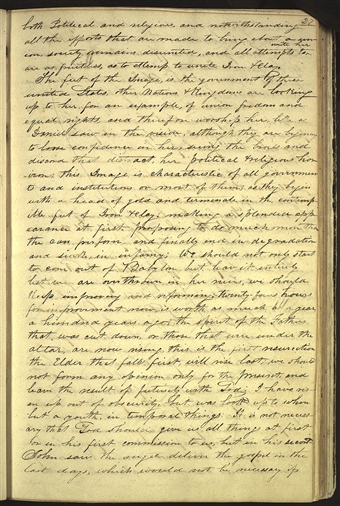 both Political and religious, and notwithstanding 31
all the efforts that are made to bring about a union
with her
society remains disunited, and all attempts to
are as fruitless as to attempt to unite Iron & clay.
The feet of the Image, is the government of these
united States. other Nations & Kingdoms are looking
up to her, for an example, of union freedom and
equal rights and therefore worship her, like as
Daniel saw in the vision, although they are beginning
to loose confidence in her, seeing the broils and
discord that distract, her Political & religious horizon
this Image is characteristic of all governments
and institutions or most of them; as they begin
with a head of gold and terminate in the contemptible
feet of Iron & clay: making a splendid appearance
at first proposing to do much more than
the can perform, and finally end in degradation
and sink, in infamy; We should not only start
to come out of Babylon but leav it entirely
lest we are overthrown in her ruins, we should
keep improving and reforming, twenty-four hours
for improvement now, is worth as much as a year
a hundred years ago; the spirits of the Fathers
that, was cut down, or those that were under the
altar, are now rising this is the first resurrection
the Elder that falls first, will rise last, we should
not form any opinion only for the present, and
leave the result of futurity with God; I have risen
up out of obscurity, but was look up to when
but a youth, in temporal things: It is not necessary
that God should give us all things at first
or in his first commission to us, but in his second
John saw the angel deliver the gospel in the
last days, which would not be necessary if